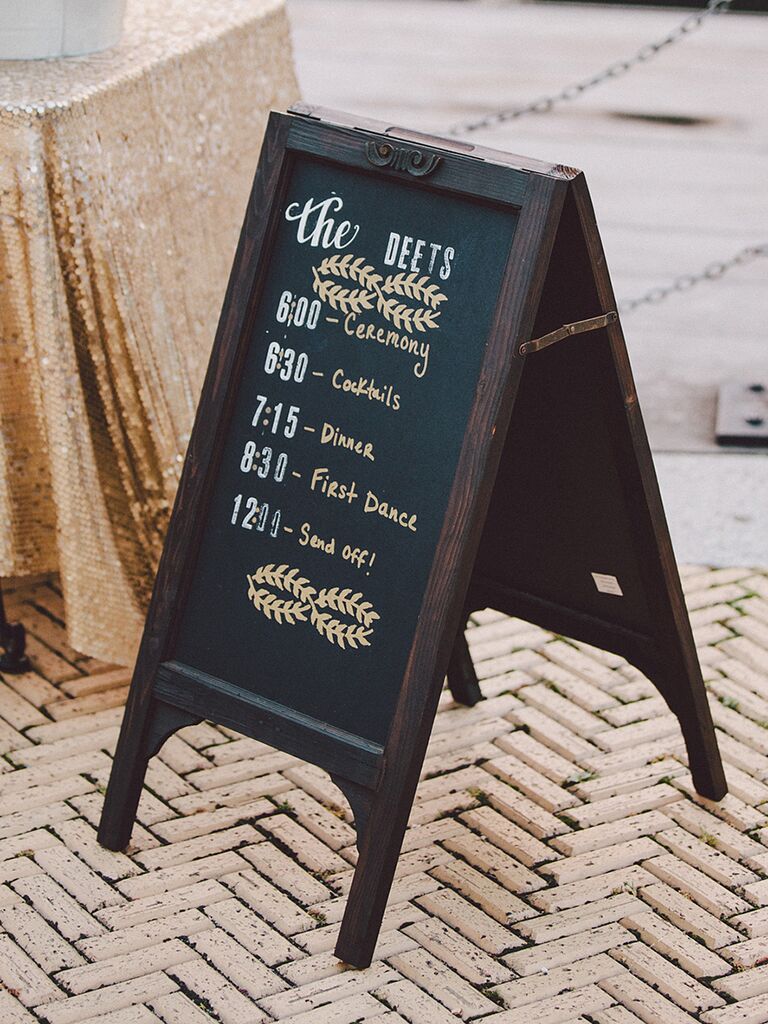 the DEETS
6:00 - Ceremony
6:30 - Cocktails
7:15 - Dinner
8:30 - First Dance
12:00 - Send off!